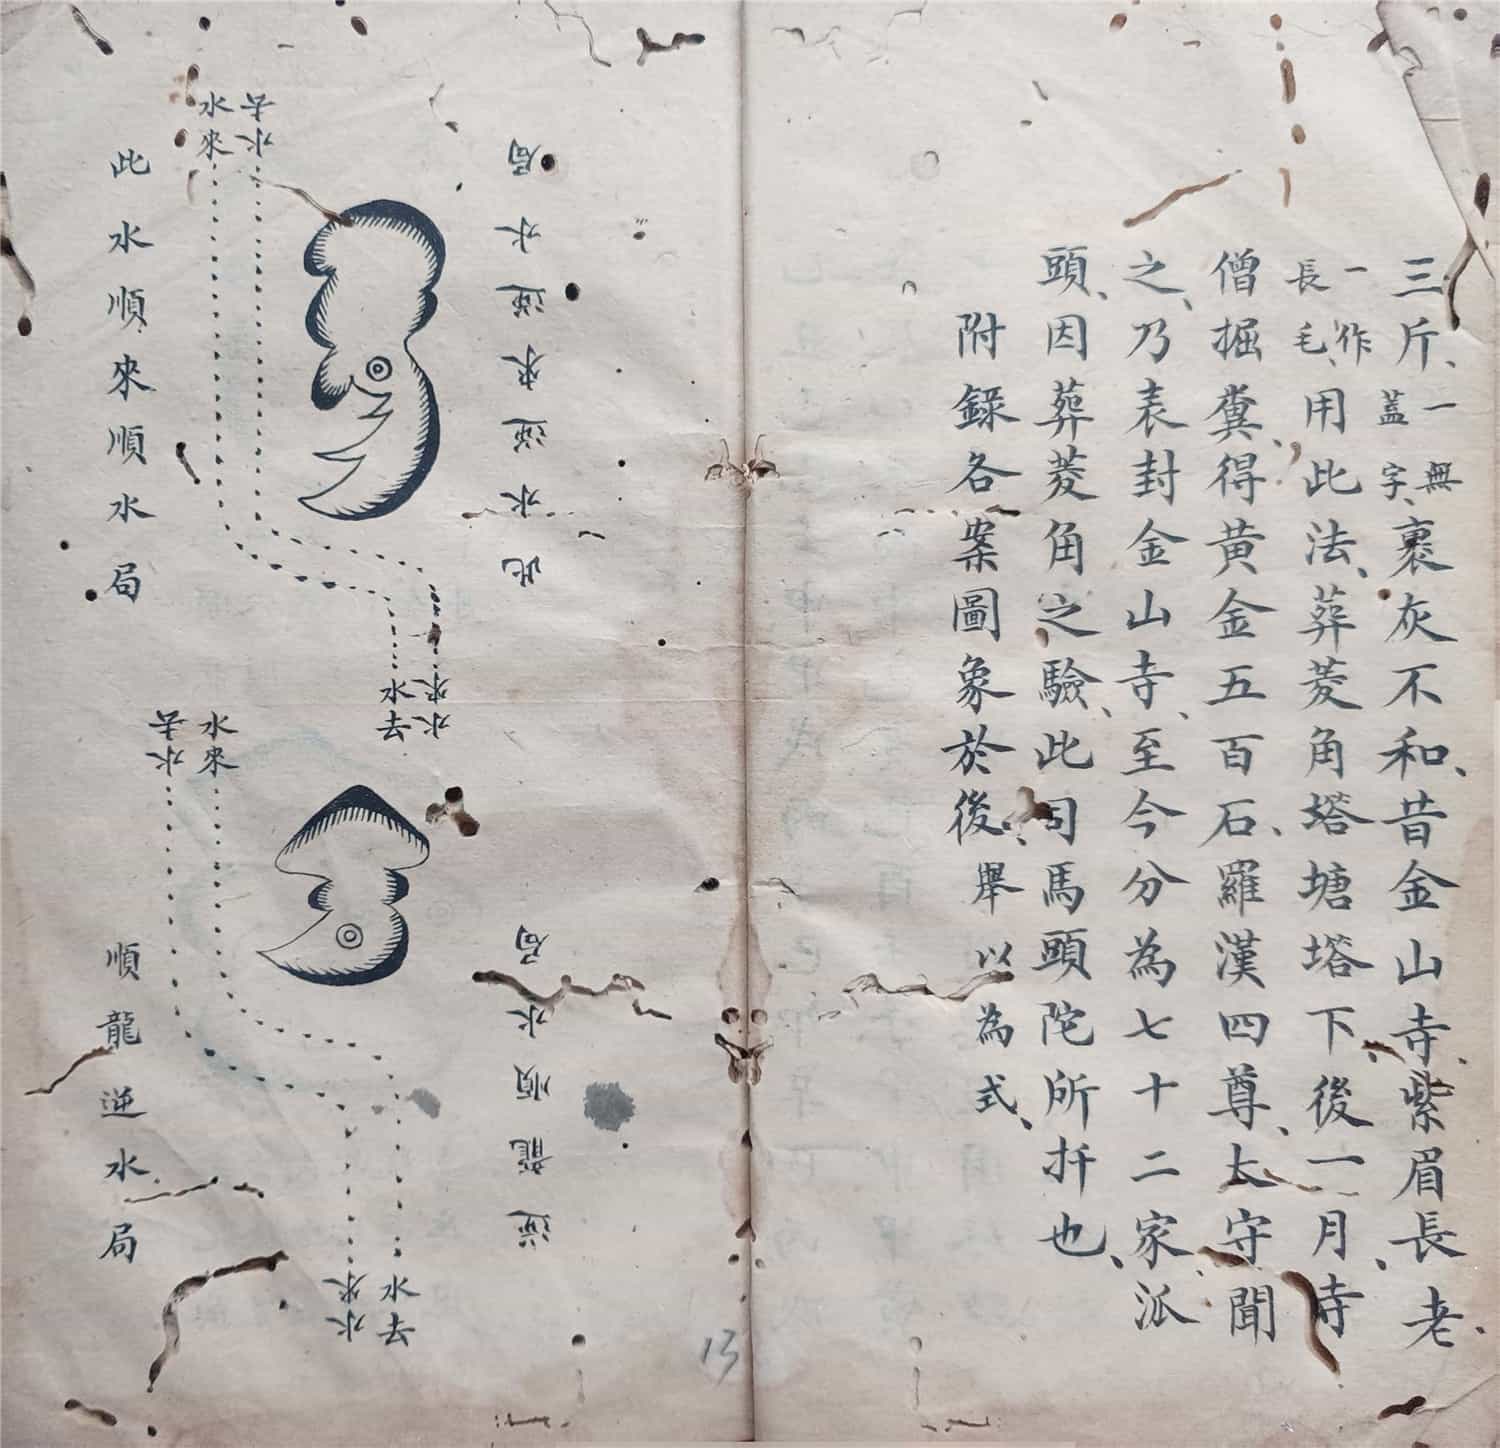 三斤、一無蓋字、裹灰不和、昔金山寺、紫眉長老
一作長毛、用此法、葬菱角塔塘塔下、後一月寺
僧掘糞、得黄金五百石、羅漢四尊、太守聞
之、乃表封金山寺、至今分為七十二家派
頭、因葬菱角之驗、此司馬頭陀所扦也、
附錄各案圖象於後、舉以為式、
此水逆來逆水局
水去
水來
水來
水去
此水順來順水局
逆龍順水局
水來
水去
水去
水來
順龍逆水局
13